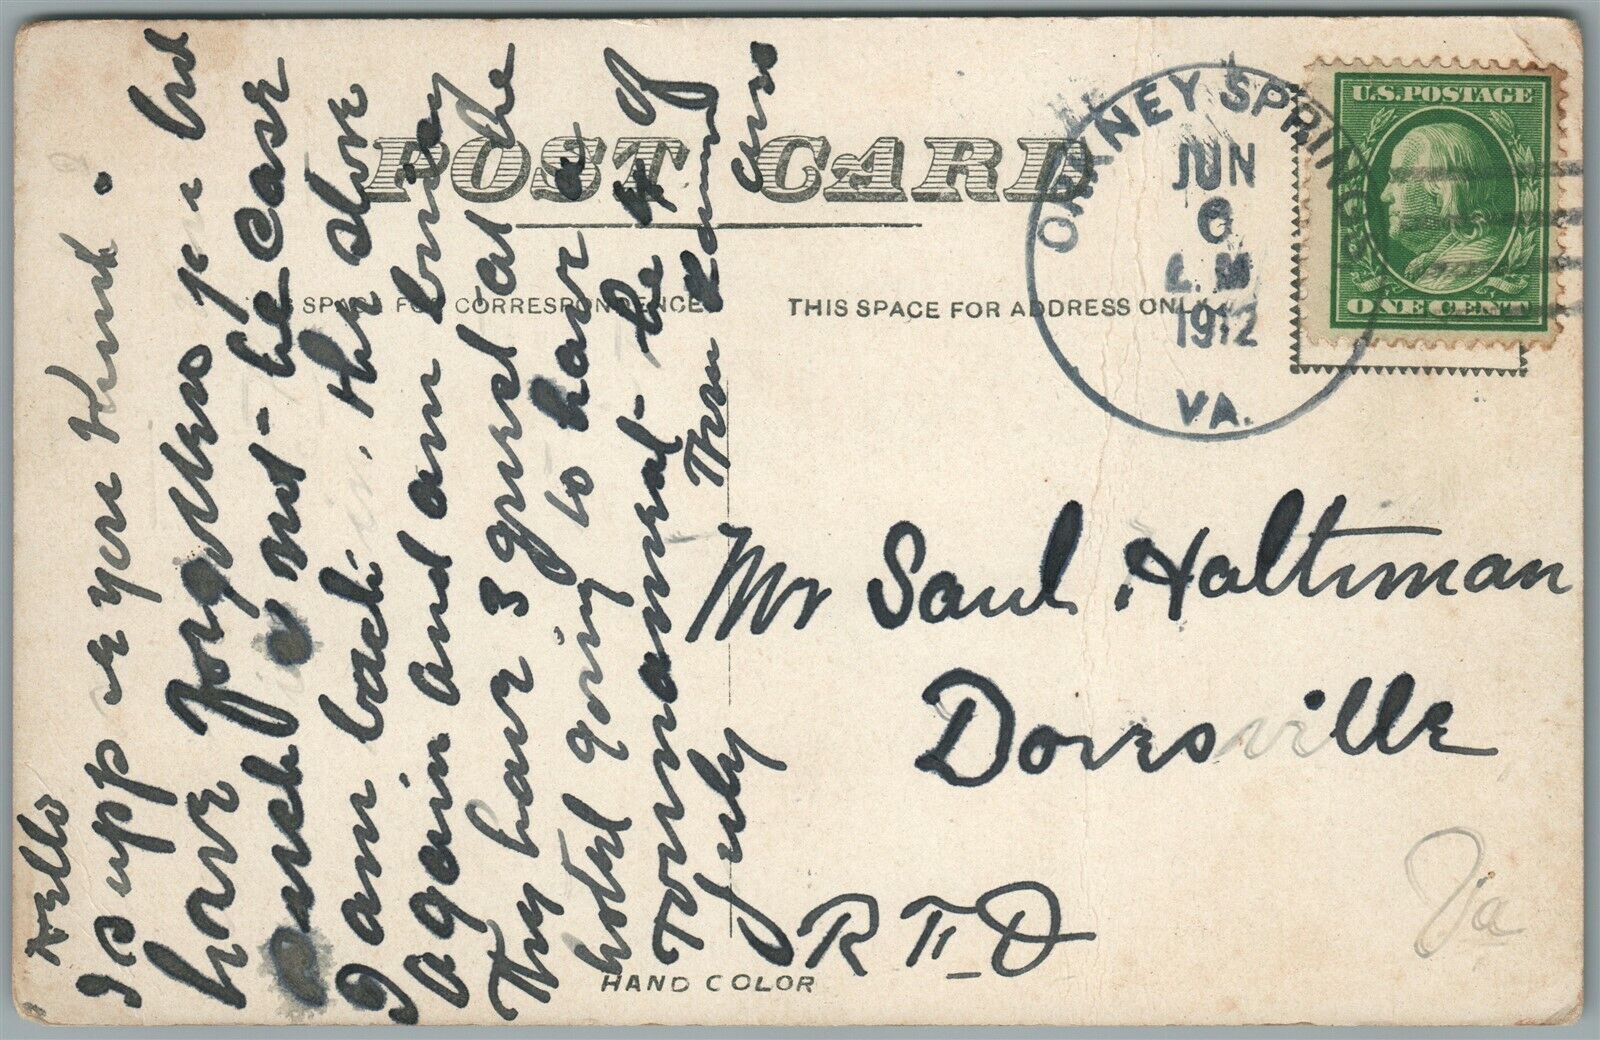 POST CARD
THIS SPACE FOR CORRESPONDENCE
THIS SPACE FOR ADDRESS ONLY
ORKNEY SPRINGS
JUN
6
1912
VA.
U.S.POSTAGE
ONE CENT
Hello
I supp you think I
have forgotten you but
such is not the case
I am back in the store
again and am busy
They have 3 guest at the
hotel going to have a
Tornament the 4 of
July
Mr Saul Haltiman
Dovesville
R F D
Va
HAND COLOR